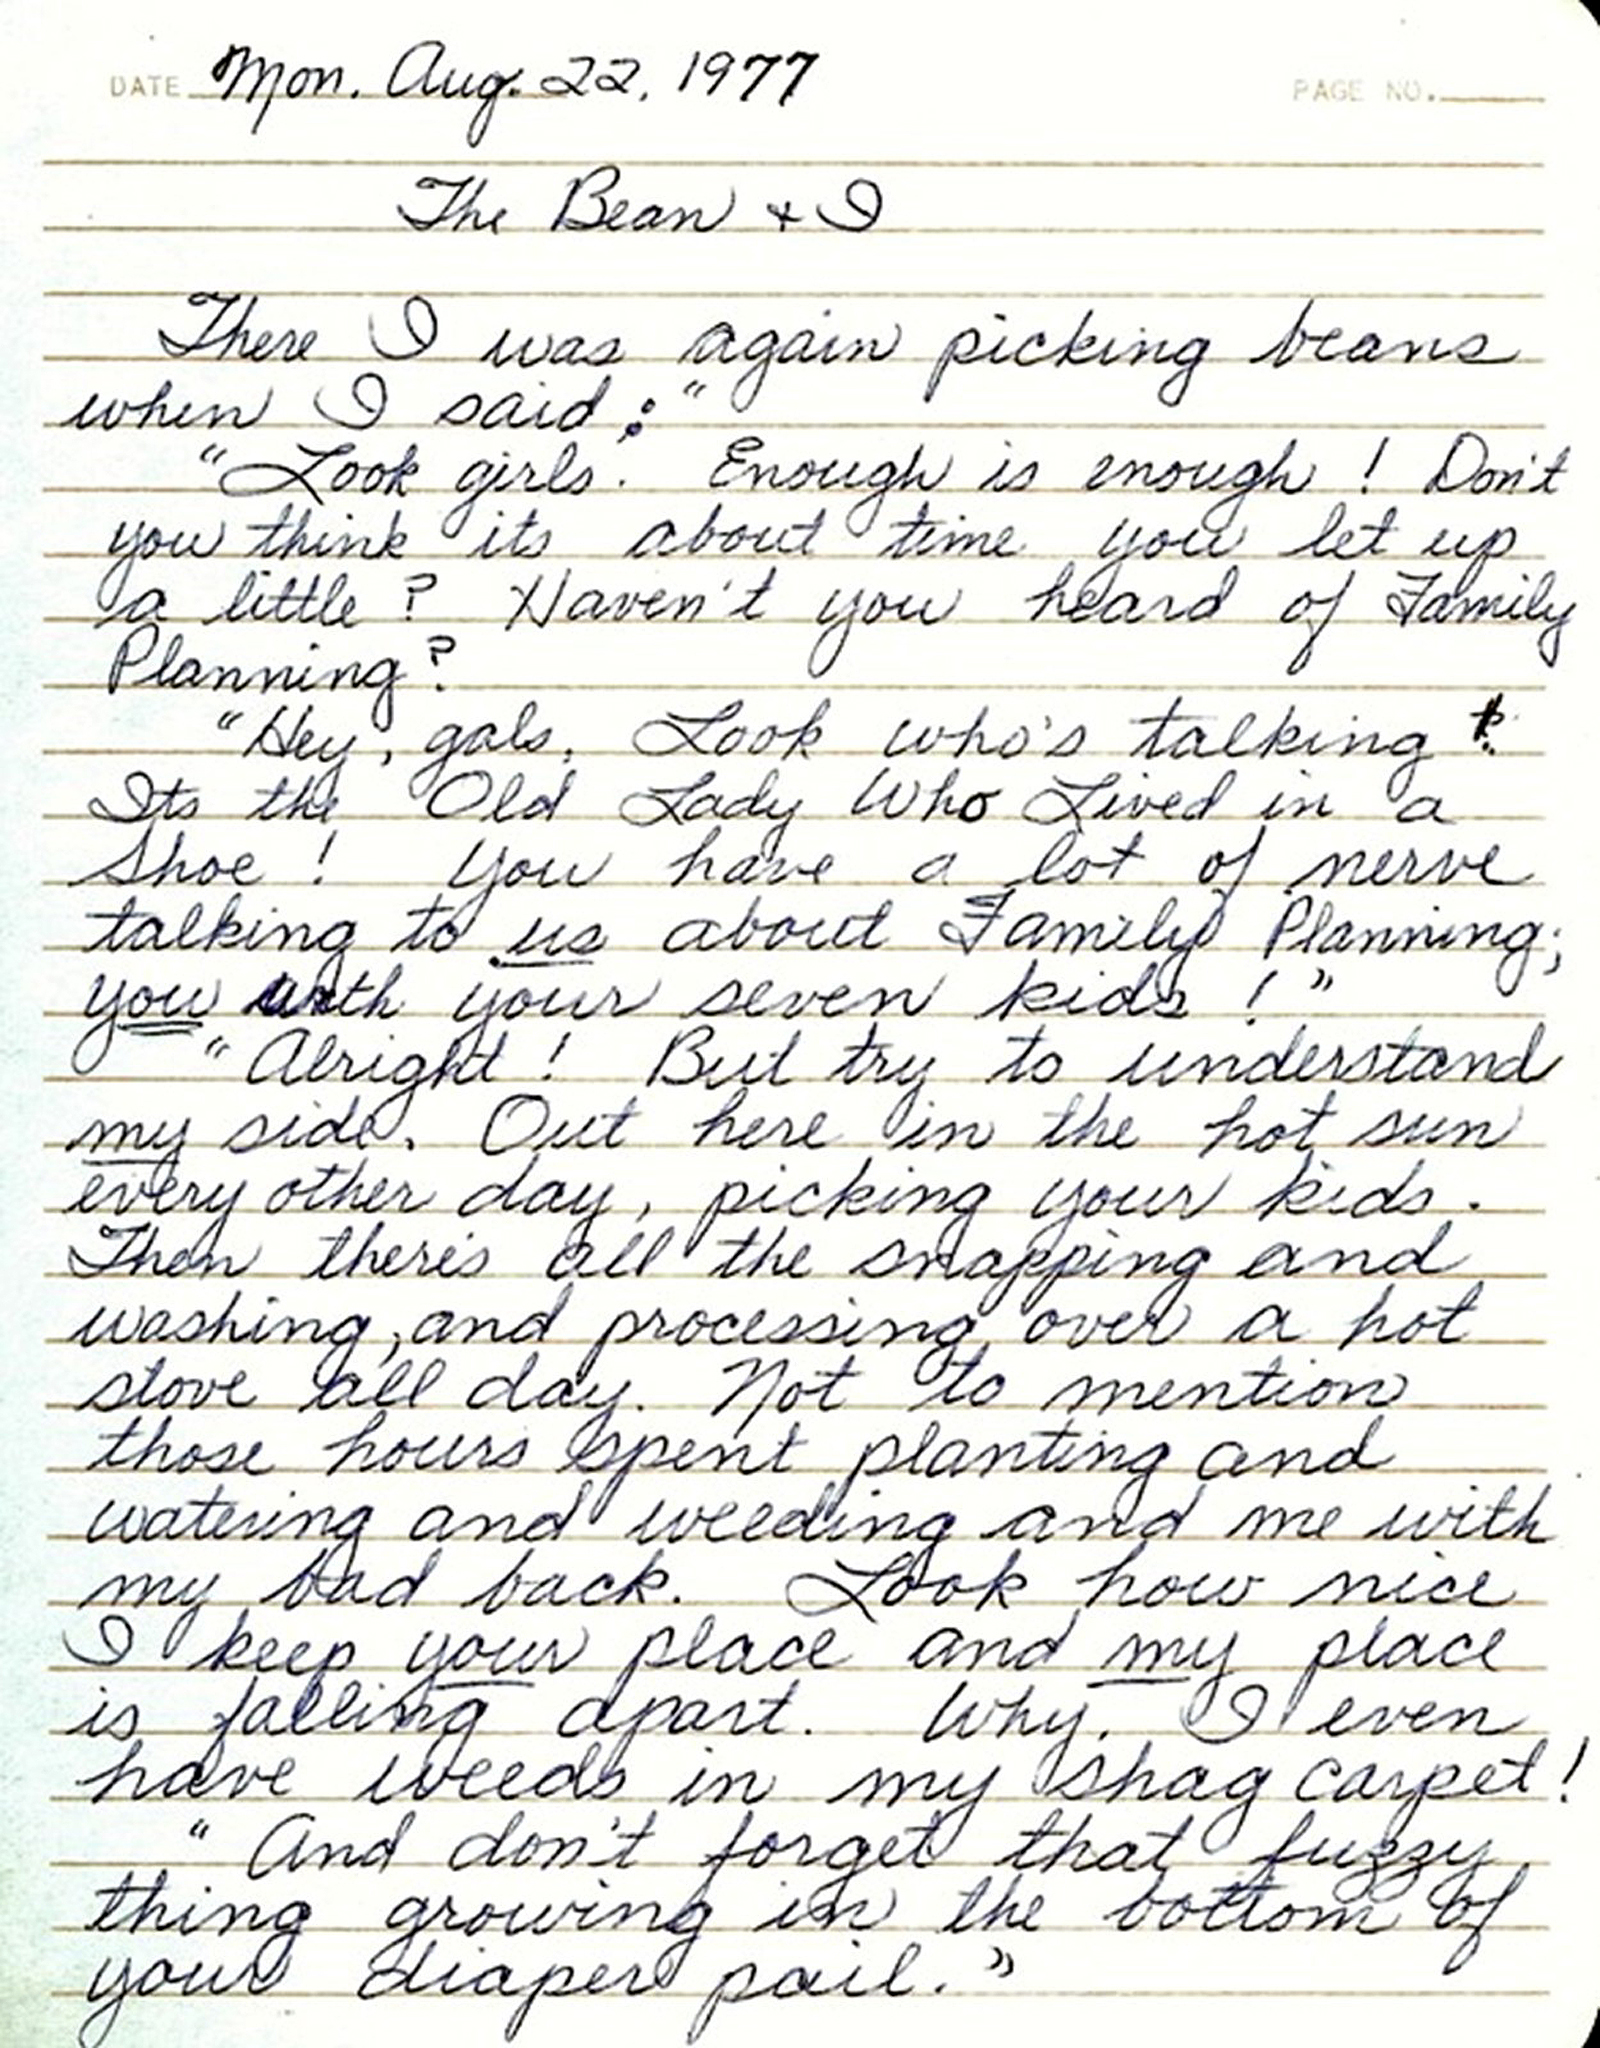 DATE Mon. Aug. 22, 1977 PAGE NO.
The Bean + I
There I was again picking beans
when I said:"
"Look girls. Enough is enough! Don't
you think its about time you let up
a little? Haven't you heard of Family
Planning?
"Hey, gals, Look who's talking!
Its the Old Lady Who Lived in a
Shoe! You have a lot of nerve
talking to us about Family Planning;
you with your seven kids!"
"Alright! But try to understand
my side. Out here in the hot sun
every other day, picking your kids.
Then there's all the snapping and
washing, and processing over a hot
stove all day. Not to mention
those hours spent planting and
watering and weeding and me with
my bad back. Look how nice
I keep your place and my place
is falling apart. Why, I even
have weeds in my shag carpet!
"And don't forget that fuzzy
thing growing in the bottom of
your diaper pail."